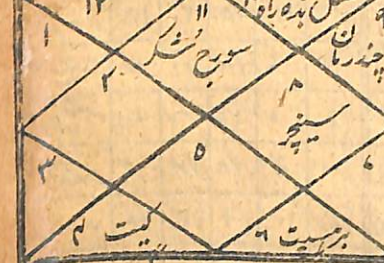 ۱۲
۱۱
بدھ راہو
۱
سورج شکر
چندرمان
۲
۸
سینچر
۵
۳
۴ کیت
۶ برہسپت